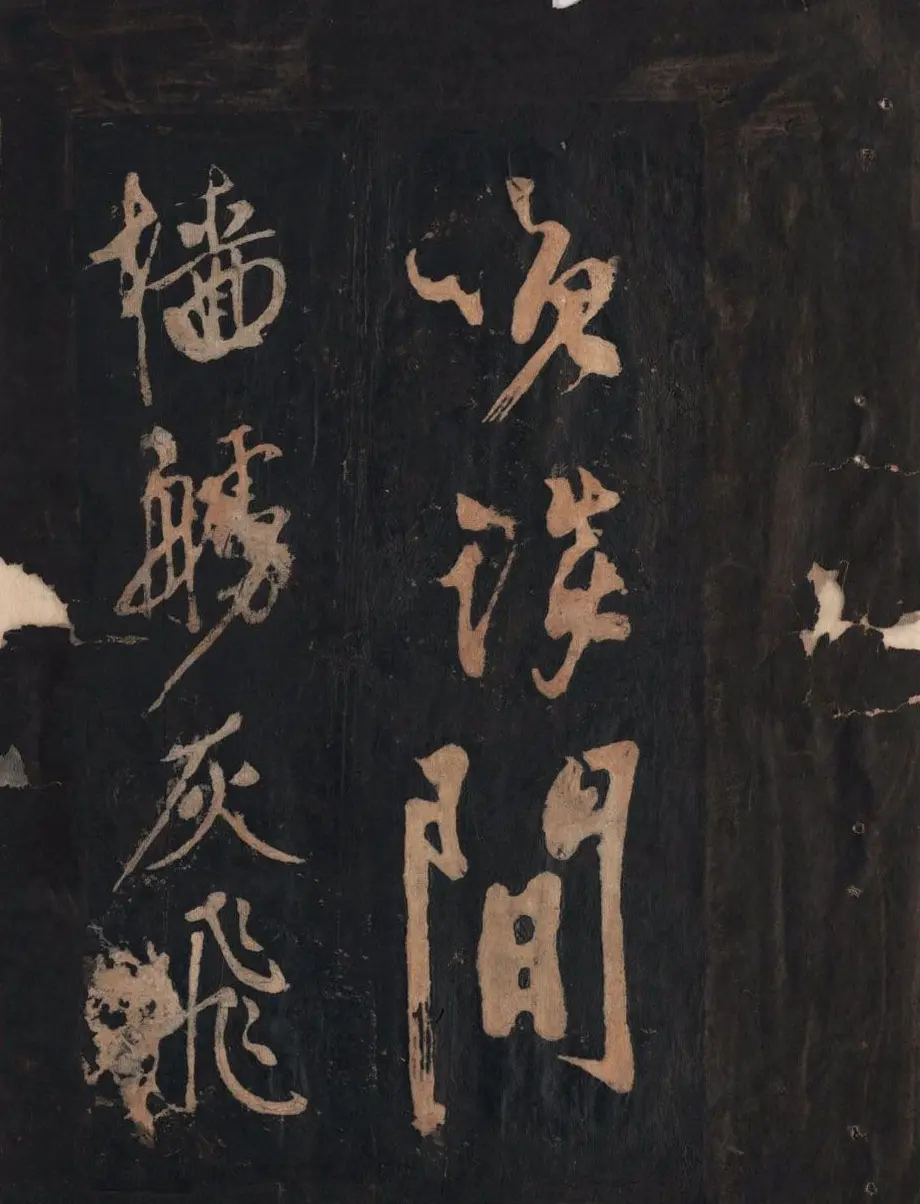 笑談間
檣艣灰飛